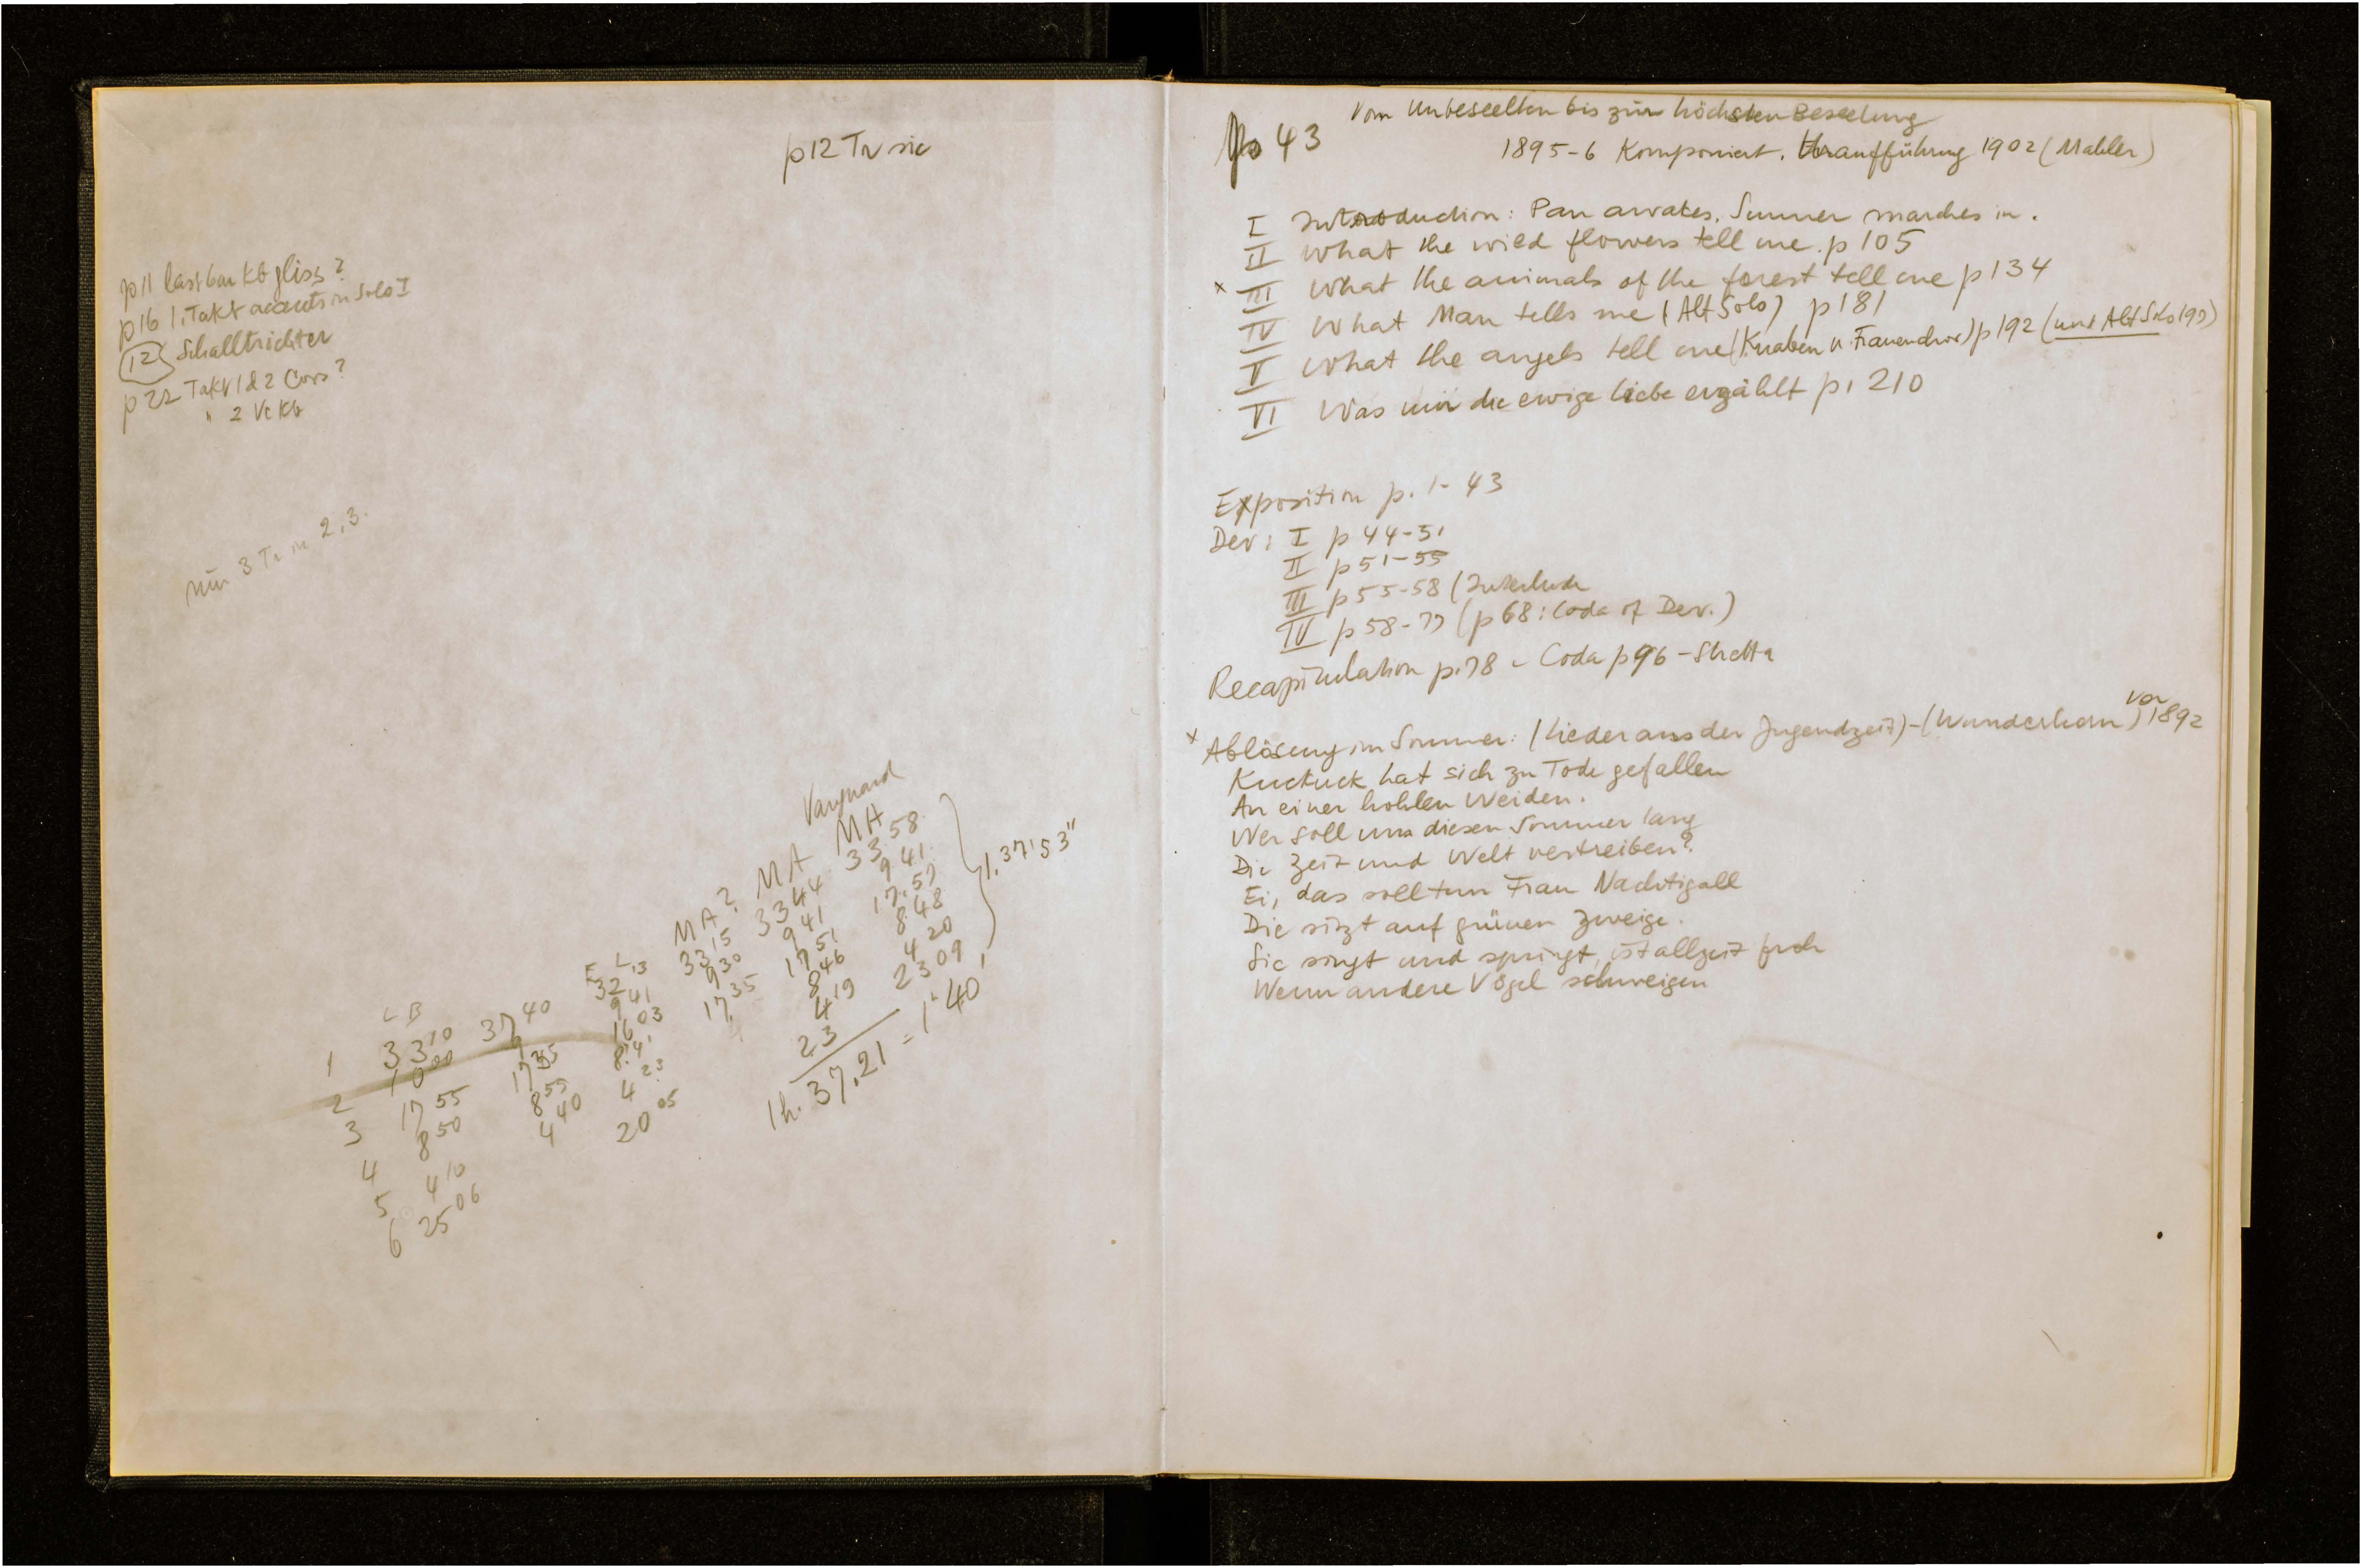 p12 Tr sic
p11 last bar Kb gliss?
p16 1. Takt accents in Solo I
12 Schalltrichter
p22 Takt 1 & 2 Cors?
" 2 Vc Kb
nur 3 Tr in 2, 3.
Vanguard
LB F L MA? MA MA
1 33 10 37 40 32 13 33 15 33 44 33 58
2 10 00 9 9 41 9 30 9 41 9 41
3 17 55 17 35 16 03 17 35 17 51 17.57
4 8 50 8 55 8 41 8 46 8 48
5 4 10 4 40 4 23 4 19 4 20
6 25 06 20 05 23 23 09
1h. 37.21 = 1 40
1. 37' 53"
No 43
Vom Unbeseelten bis zur höchsten Beseelung
1895-6 Komponiert. Uraufführung 1902 (Mahler)
I Introduction: Pan awakes, Summer marches in.
II What the wild flowers tell me. p 105
x III What the animals of the forest tell me p 134
IV What Man tells me (Alt Solo) p 181
V What the angels tell me (Knaben u. Frauenchor) p 192 (und Alt Solo 197)
VI Was mir die ewige Liebe erzählt p. 210
Exposition p. 1 - 43
Dev: I p 44-51
II p 51-55
III p 55-58 (Interlude
IV p 58-77 (p 68: Coda of Dev.)
Recapitulation p. 78 - Coda p 96 - Stretta
x Ablösung im Sommer: (Lieder aus der Jugendzeit) - (Wunderhorn) vor 1892
Kuckuck hat sich zu Tode gefallen
An einer hohlen Weiden.
Wer soll uns diesen Sommer lang
Die Zeit und Welt vertreiben?
Ei, das soll tun Frau Nachtigall
Die sitzt auf grünen Zweige.
Sie singt und springt, ist allzeit froh
Wenn andere Vögel schweigen